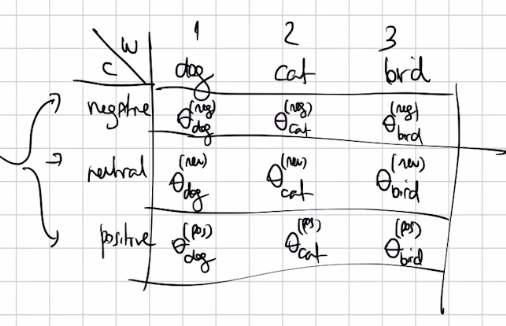 1 2 3
W
C dog cat bird
negative θ_dog^(neg) θ_cat^(neg) θ_bird^(neg)
neutral θ_dog^(neu) θ_cat^(neu) θ_bird^(neu)
positive θ_dog^(pos) θ_cat^(pos) θ_bird^(pos)